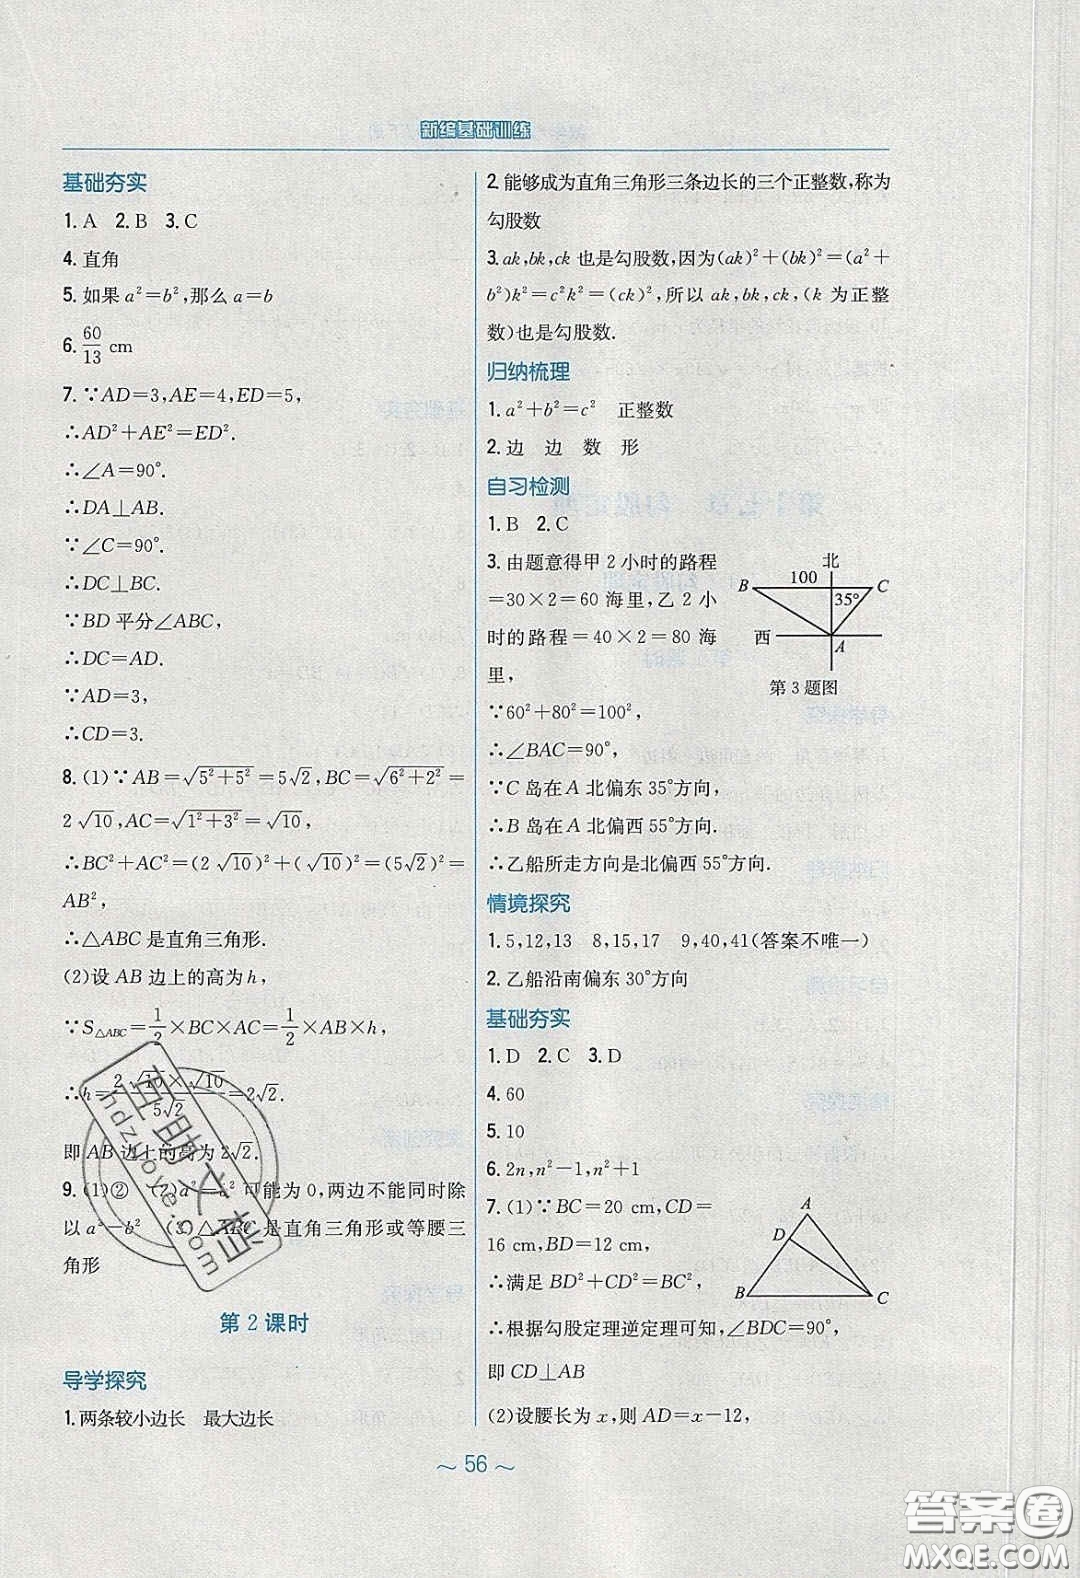 新编基础训练
基础夯实
1. A 2. B 3. C
4. 直角
5. 如果 a²=b²,那么 a=b
6. 60/13 cm
7. ∵AD=3,AE=4,ED=5,
∴AD²+AE²=ED².
∴∠A=90°.
∴DA⊥AB.
∵∠C=90°.
∴DC⊥BC.
∵BD 平分∠ABC,
∴DC=AD.
∵AD=3,
∴CD=3.
8. (1)∵AB=√(5²+5²)=5√2,BC=√(6²+2²)=
2√10,AC=√(1²+3²)=√10,
∴BC²+AC²=(2√10)²+(√10)²=(5√2)²=
AB²,
∴△ABC 是直角三角形.
(2)设 AB 边上的高为 h,
∵S△ABC=1/2×BC×AC=1/2×AB×h,
∴h=2√10×√10/5√2=2√2.
即 AB 边上的高为 2√2.
9. (1)② (2)a²-b² 可能为 0,两边不能同时除
以 a²-b² (3)△ABC 是直角三角形或等腰三
角形
第 2 课时
导学探究
1. 两条较小边长 最大边长
2. 能够成为直角三角形三条边长的三个正整数,称为
勾股数
3. ak,bk,ck 也是勾股数,因为(ak)²+(bk)²=(a²+
b²)k²=c²k²=(ck)²,所以 ak,bk,ck,(k 为正整
数)也是勾股数.
归纳梳理
1. a²+b²=c² 正整数
2. 边 边 数 形
自习检测
1. B 2. C
3. 由题意得甲 2 小时的路程
=30×2=60 海里,乙 2 小
时的路程=40×2=80 海
里,
∵60²+80²=100²,
∴∠BAC=90°,
∵C 岛在 A 北偏东 35°方向,
∴B 岛在 A 北偏西 55°方向.
∴乙船所走方向是北偏西 55°方向.
北
B 100 C
35°
西
A
第 3 题图
情境探究
1. 5,12,13 8,15,17 9,40,41(答案不唯一)
2. 乙船沿南偏东 30°方向
基础夯实
1. D 2. C 3. D
4. 60
5. 10
6. 2n,n²-1,n²+1
7. (1)∵BC=20 cm,CD=
16 cm,BD=12 cm,
∴满足 BD²+CD²=BC²,
∴根据勾股定理逆定理可知,∠BDC=90°,
即 CD⊥AB
(2)设腰长为 x,则 AD=x-12,
A
D
B C
~ 56 ~
互助文档
hdzuoye.com
答案圈
MXQE.COM